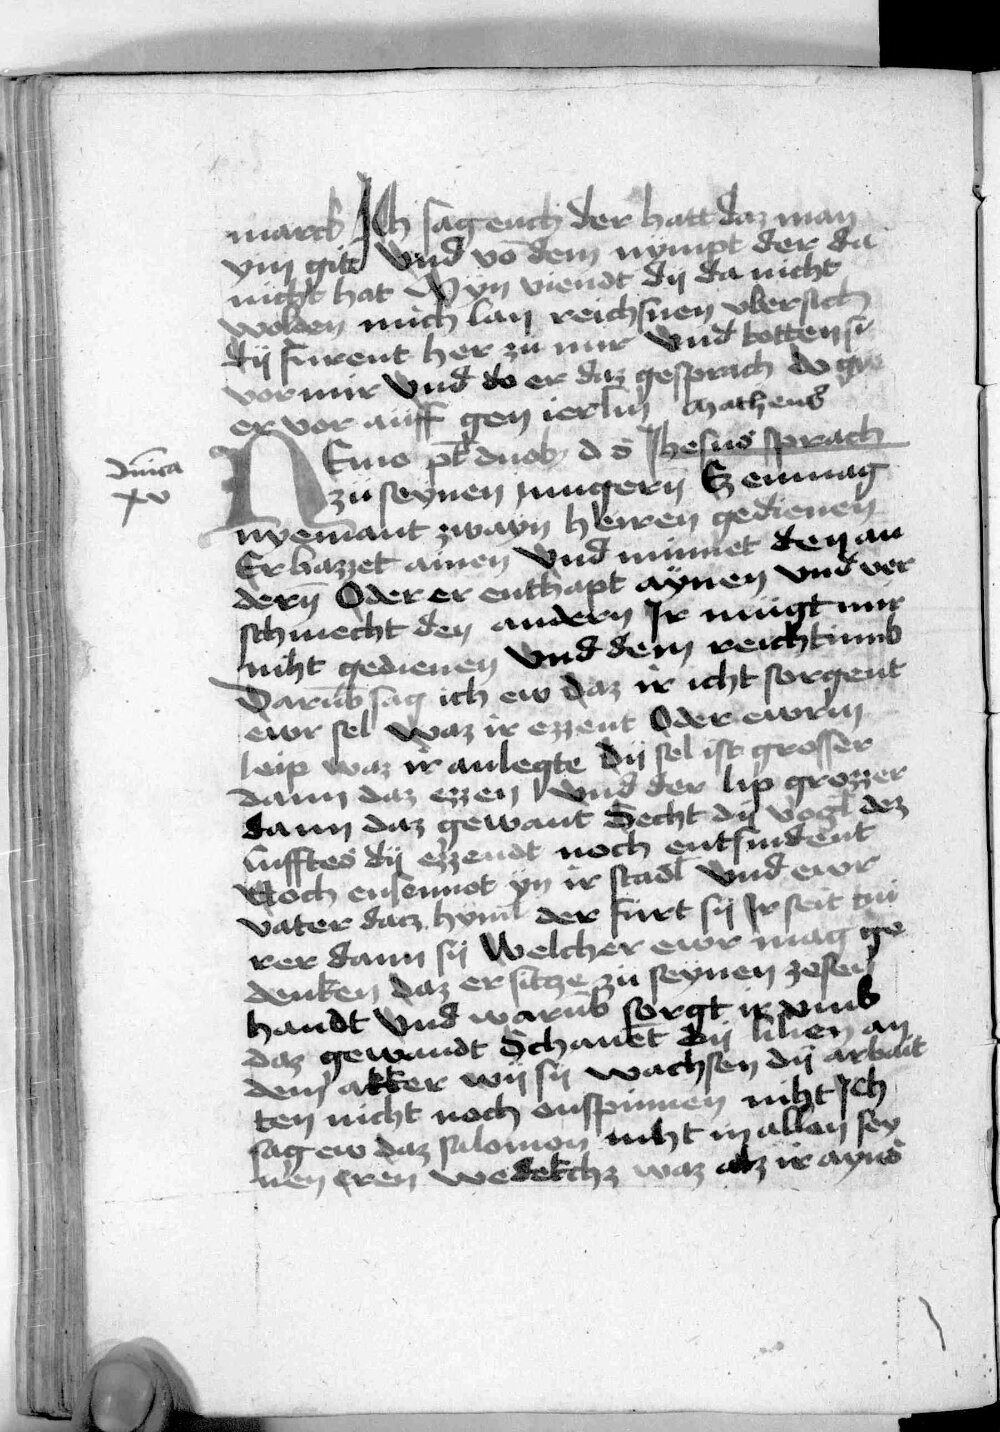 marck Ich sag euch der hatt daz man
ym git Vnd võ dem nympt der da
nicht hat Myn viendt dij da nicht
wolden mich lan reichsnen vbersich
dij furent her zu mir Vnd tottensi
vor mir Vnd do er daz gesprach do
er vor auff gen ierlm̄ Matheus
Dm̄ca
xv
NEmo pt̄ duob d s̄ Jhesus sprach
zü seynen iungern̄ Ez enmag
nyemant zwayn herren gedienen
Er hazzet ainen Vnd minnet den an
dern̄ Oder er enthapt aynen Vnd ver
schmecht den andern Ir mugt mir
niht gedienen Vnd dem reichtumb
Darūb sag ich ew daz ir icht sorgent
ewr sel waz ir ezzent Oder ewrm
leip waz ir anlegte Dij sel ist grosser
dann daz ezzen Vnd der lip grozzer
dann daz gewant Secht dij vogl dez
lufftes dij ezzendt noch entsindent
Noch ensennot yn ir stadl Vnd ewr
vater dacz hyml der furt sij Ir seit tiu
rer dann sij Welcher ewr mag ge
denken daz er sitze zü seynen zesen
handt Vnd warūb sorgt ir vmb
daz gewandt Schauet dij lilien an
dem akker wij sij wachsen dij arbait
ten nicht noch enspinnen niht Ich
sag ew daz salomon niht in allen sey
nen eren wedekchz waz alz ir ayns